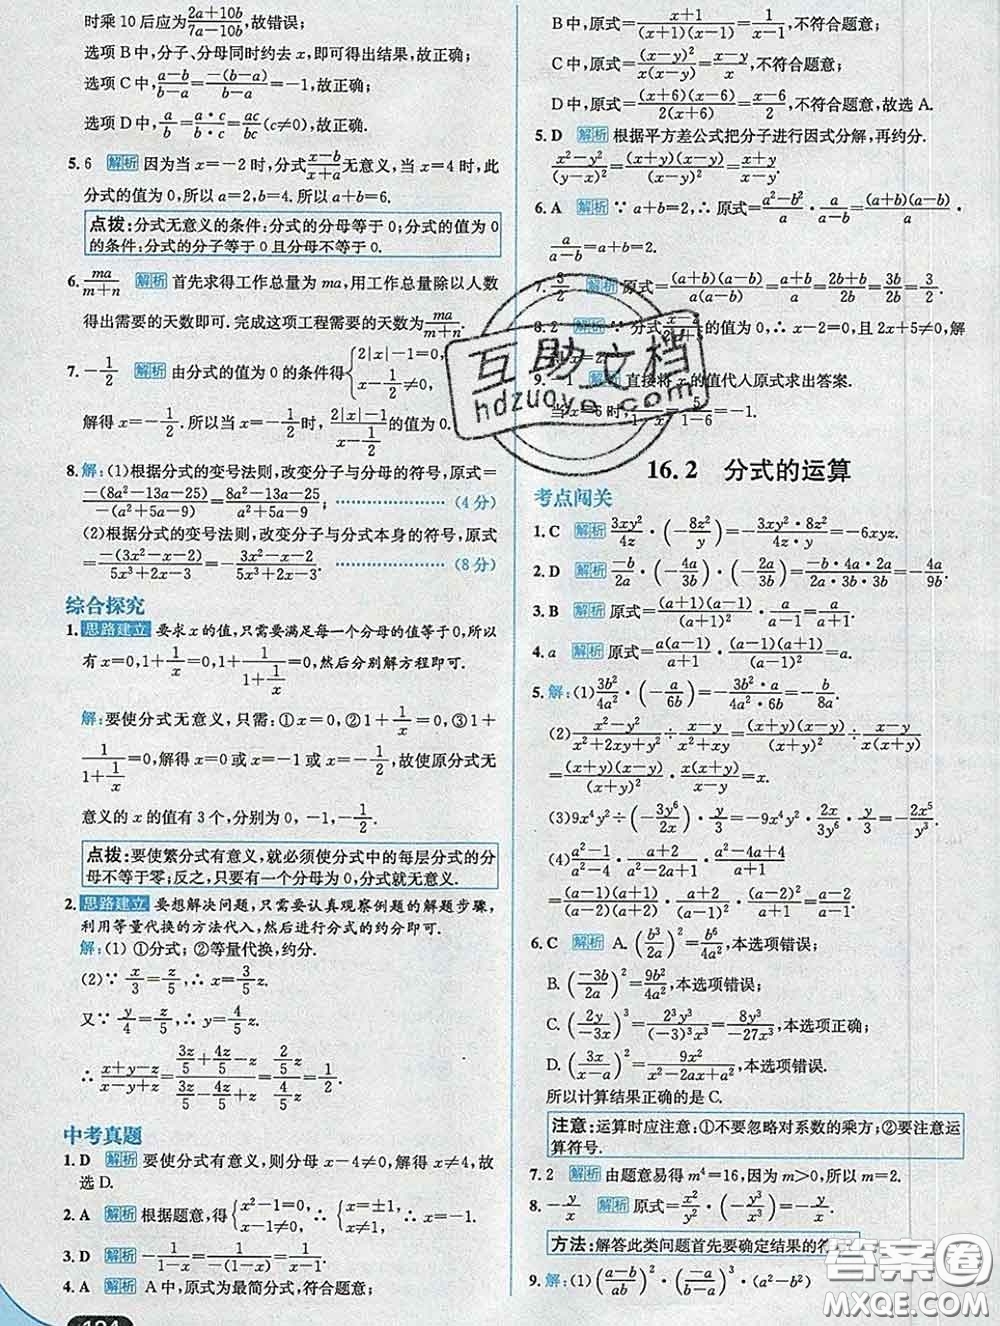 时乘 10 后应为(2a+10b)/(7a-10b),故错误;
选项 B 中,分子、分母同时约去 x,即可得出结果,故正确;
选项 C 中,(a-b)/(b-a)=-(b-a)/(b-a)=-1,故正确;
选项 D 中,a/b=(a·c)/(b·c)=ac/bc(c≠0),故正确.
5. 6 解析 因为当 x=-2 时,分式(x-b)/(x+a)无意义,当 x=4 时,此
分式的值为 0,所以 a=2,b=4. 所以 a+b=6.
点拨:分式无意义的条件:分式的分母等于 0;分式的值为 0
的条件:分式的分子等于 0 且分母不等于 0.
6. ma/(m+n) 解析 首先求得工作总量为 ma,用工作总量除以人数
得出需要的天数即可. 完成这项工程需要的天数为 ma/(m+n).
7. -1/2 解析 由分式的值为 0 的条件得{2|x|-1=0, x-1/2≠0,
解得 x=-1/2. 所以当 x=-1/2 时,分式(2|x|-1)/(x-1/2)的值为 0.
8. 解:(1)根据分式的变号法则,改变分子与分母的符号,原式=
-(8a²-13a-25)/-(a²+5a-9)=(8a²-13a-25)/(a²+5a-9). (4 分)
(2)根据分式的变号法则,改变分子与分式本身的符号,原式
=-(3x²-x-2)/(5x³+2x-3)=-(3x²-x-2)/(5x³+2x-3). (8 分)
综合探究
1. 思路建立 要求 x 的值,只需要满足每一个分母的值等于 0,所以
有 x=0,1+1/x=0,1+1/(1+1/x)=0,然后分别解方程即可.
解:要使分式无意义,只需:①x=0,②1+1/x=0,③1+
1/(1+1/x)=0,解得 x=0 或 x=-1 或 x=-1/2,故使原分式无
意义的 x 的值有 3 个,分别为 0,-1,-1/2.
点拨:要使繁分式有意义,就必须使分式中的每层分式的分
母不等于零;反之,只要有一个分母为 0,分式就无意义.
2. 思路建立 要想解决问题,只需要认真观察例题的解题步骤,
利用等量代换的方法代入,然后进行分式的约分即可.
解:(1) ①分式;②等量代换,约分.
(2)∵ x/3=z/5,∴ x=3/5 z.
又∵ y/4=z/5,∴ y=4/5 z.
∴ (x+y-z)/(x-y+z)=(3z/5+4z/5-z)/(3z/5-4z/5+z)=(2/5 z)/(4/5 z)=1/2.
中考真题
1. D 解析 要使分式有意义,则分母 x-4≠0,解得 x≠4,故
选 D.
2. A 解析 根据题意,得{x²-1=0, x-1≠0,∴{x=±1, x≠1,∴ x=-1.
3. D 解析 -1/(1-x)=1/-(1-x)=1/(x-1).
4. A 解析 A 中,原式为最简分式,符合题意;
B 中,原式=(x+1)/((x+1)(x-1))=1/(x-1),不符合题意;
C 中,原式=(x-y)²/(x(x-y))=(x-y)/x,不符合题意;
D 中,原式=(x+6)(x-6)/(2(x+6))=(x-6)/2,不符合题意,故选 A.
5. D 解析 根据平方差公式把分子进行因式分解,再约分.
(x²-y²)/(y-x)²=(x+y)(x-y)/(x-y)²=(x+y)/(x-y).
6. A 解析 ∵ a+b=2,∴ 原式=(a²-b²)/a·a/(a-b)=(a+b)(a-b)/a·
a/(a-b)=a+b=2.
7. 3/2 解析 原式=(a+b)(a-b)/(a(a-b))=(a+b)/a=(2b+b)/2b=3b/2b=3/2.
8. 2 解析 ∵ 分式的值为 0,∴ x-2=0,且 2x+5≠0,解
x=2
9. -1 解析 直接将 x 的值代入原式求出答案.
当 x=6 时,5/(1-x)=5/(1-6)=-1.
16.2 分式的运算
考点闯关
1. C 解析 3xy²/4z·(-8z²/y)=-(3xy²·8z²)/(4z·y)=-6xyz.
2. D 解析 -b/2a·(-4a/3b)·(-2a/3b)=(-b·4a·2a)/(2a·3b·3b)=-4a/9b.
3. B 解析 原式=(a+1)(a-1)/a²·a/(a-1)=(a+1)/a.
4. a 解析 原式=a(a-1)/(a+1)·(a+1)(a-1)/(a-1)²=a.
5. 解:(1)3b²/4a²·(-a/6b)=-(3b²·a)/(4a²·6b)=-b/8a.
(2)(x²-y²)/(x²+2xy+y²)÷(x-y)/(x²+xy)=(x+y)(x-y)/(x+y)²÷(x-y)/(x(x+y))
=(x+y)(x-y)/(x+y)²·x(x+y)/(x-y)=x.
(3)9x⁴y²÷(-3y⁶/2x)·y/3=-9x⁴y²·2x/3y⁶·y/3=-2x⁵/y³.
(4)(a²-1)/(a²-4)÷(a²+a)/(a-2)·(a²-4a+4)/(a-1)
=(a+1)(a-1)/((a+2)(a-2))·(a-2)/(a(a+1))·(a-2)²/(a-1)=(a-2)²/(a(a+2)).
6. C 解析 A. (b³/2a)²=b⁶/4a²,本选项错误;
B. (-3b/2a)²=9b²/4a²,本选项错误;
C. (2y/-3x)³=2³y³/((-3)³x³)=8y³/-27x³,本选项正确;
D. (3x/(x-a))²=9x²/(x²-2ax+a²),本选项错误.
所以计算结果正确的是 C.
注意:运算时应注意:①不要忽略对系数的乘方;②要注意运
算符号.
7. 2 解析 由题意易得 m⁴=16,因为 m>0,所以 m=2.
8. -y/x 解析 原式=x²/y²·(-y³/x³)=-y/x.
方法:解答此类问题首先要确定结果的符
9. 解:(1)((a-b)/ab)²·(-a/(b-a))³·(a²-b²)
互助文档
hdzuoye.com
答案圈
MXQE.COM